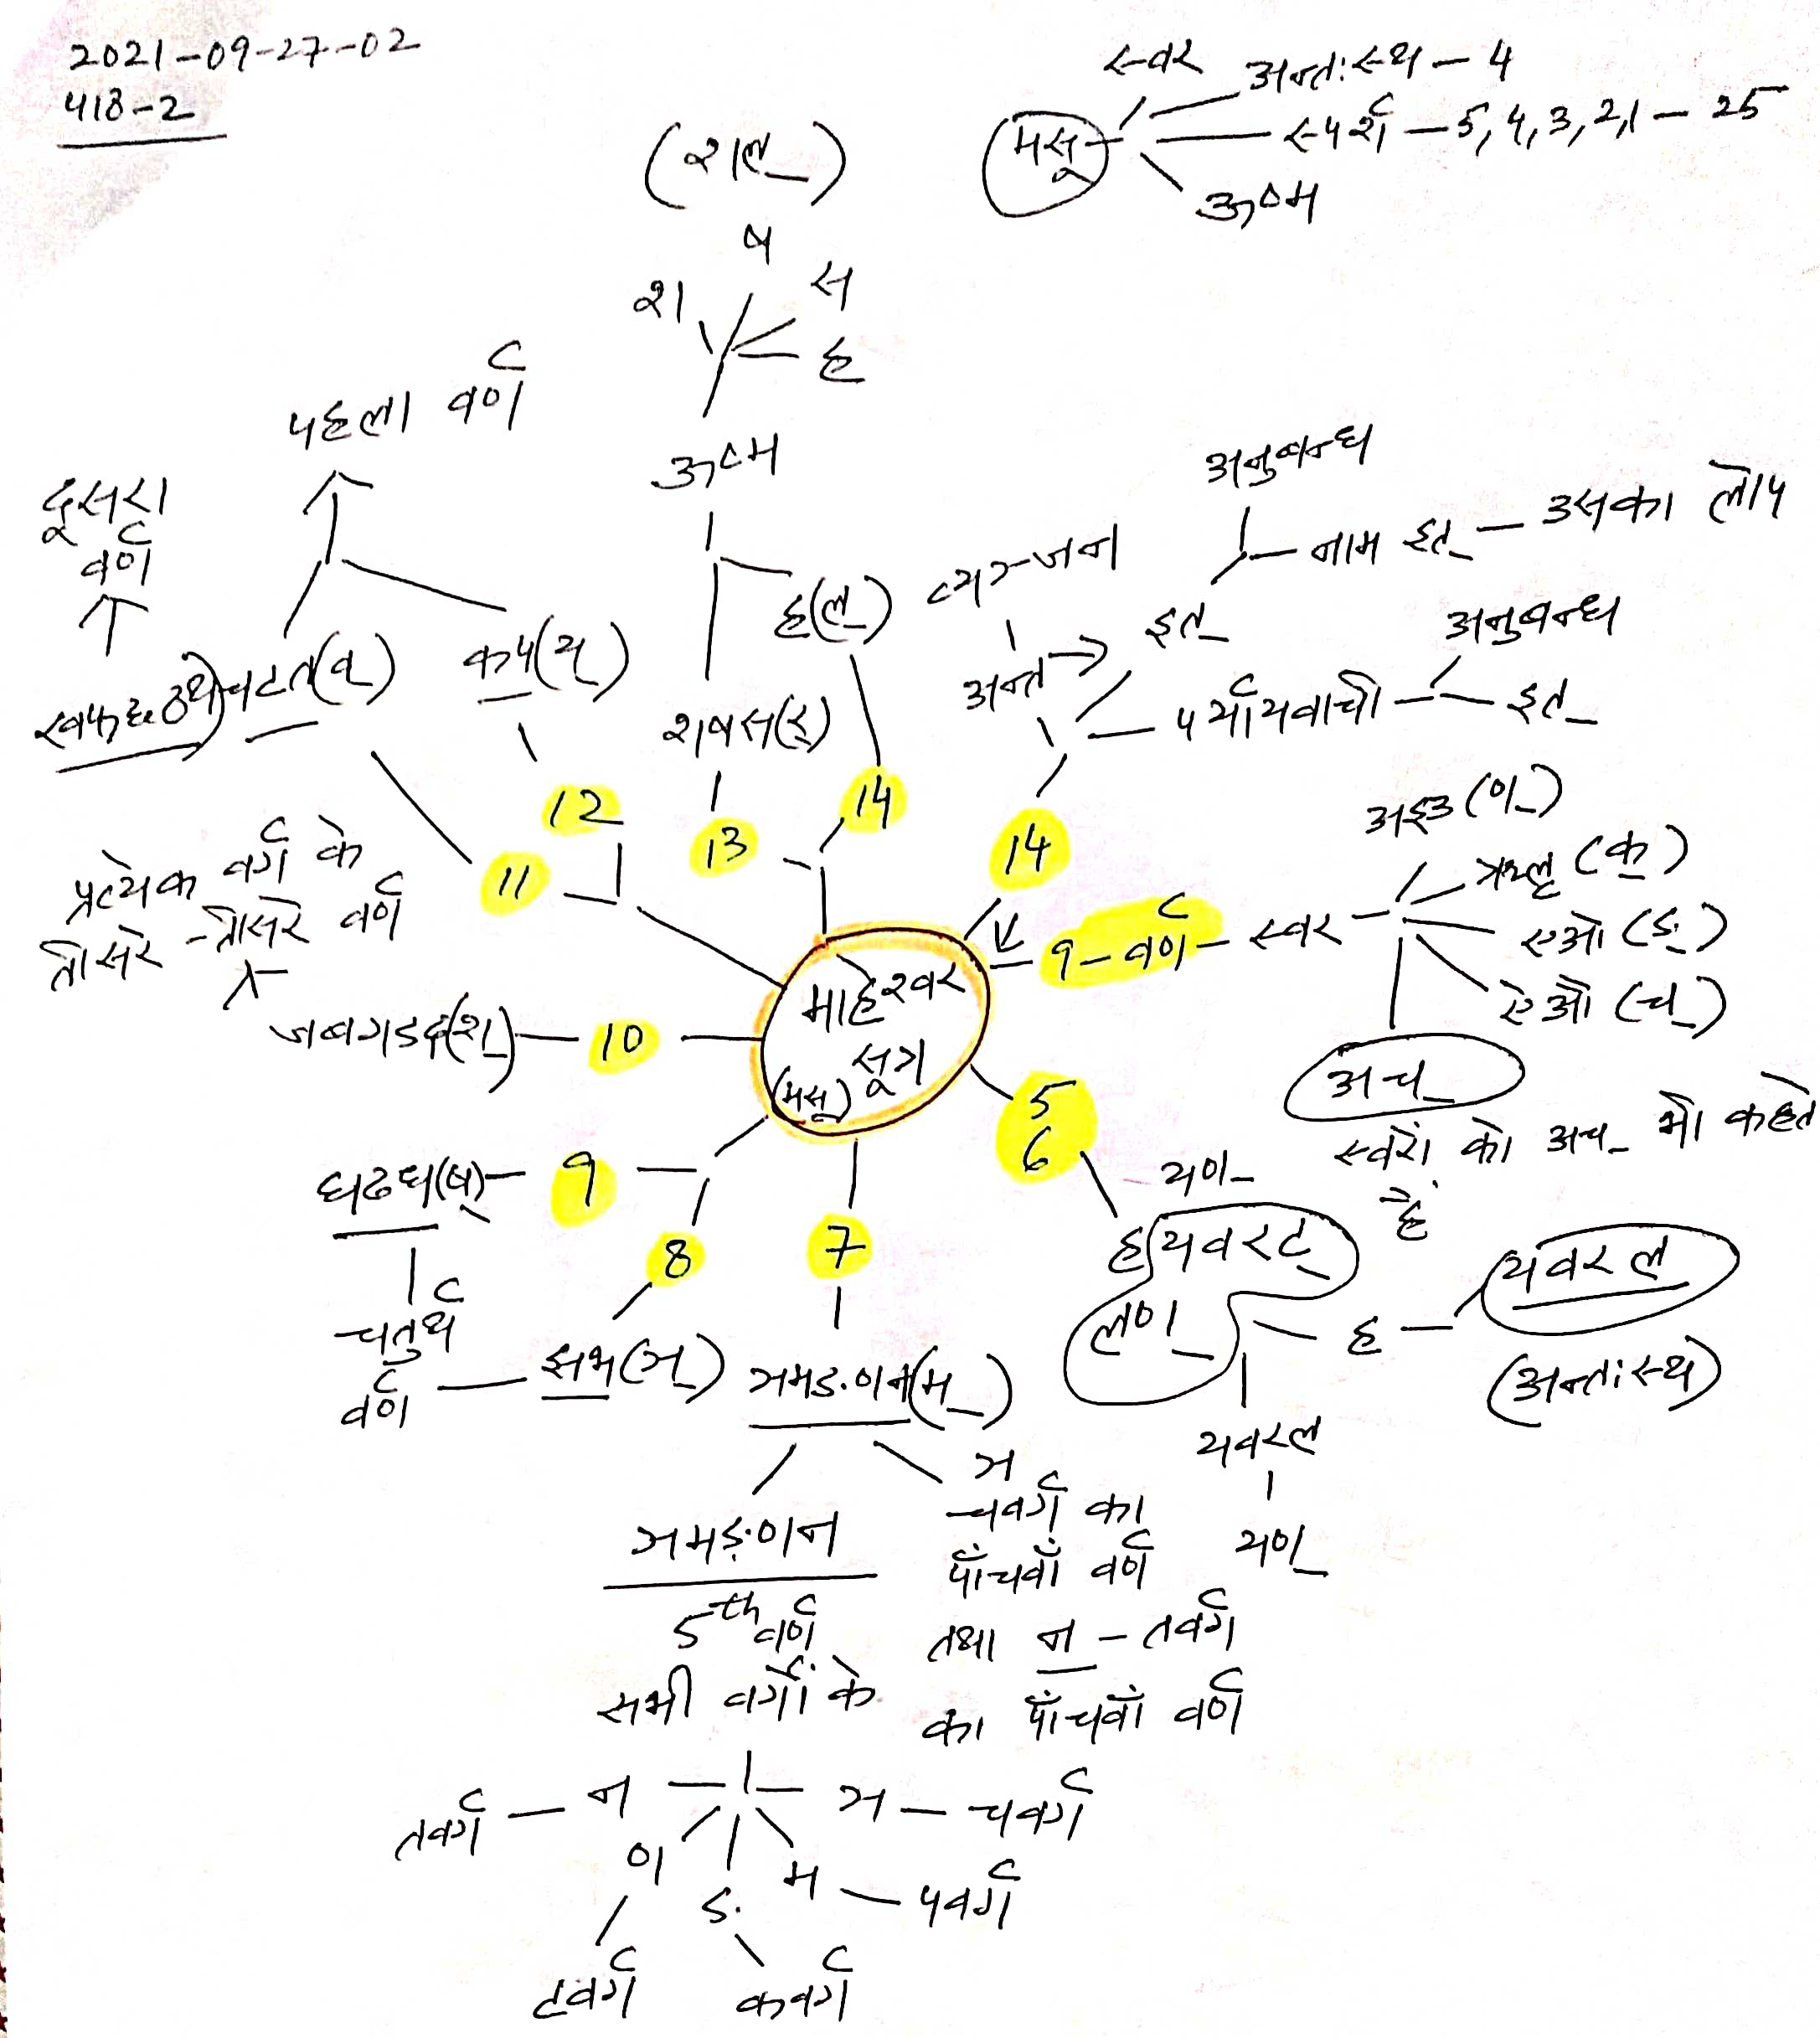 2021-09-27-02
418-2
स्वर
अन्तःस्थ - 4
मसू
स्पर्श - 5, 4, 3, 2, 1 - 25
ऊष्म
(शल्)
ष
श
स
ह
ऊष्म
पहला वर्ण
दूसरा
वर्ण
अनुबन्ध
नाम इत् - उसका लोप
व्यञ्जन
इत्
अन्त
अनुबन्ध
पर्यायवाची
इत्
ह(ल्)
कप(य्)
चटत(व्)
शषस(र्)
12
13
14
11
14
प्रत्येक वर्ग के
तीसरे - तीसरे वर्ण
अइउ (ण्)
ऋलृ (क्)
9 - वर्ण - स्वर
एओ (ङ्)
ऐऔ (च्)
माहेश्वर
सूत्र
(मसू)
जबगडद(श्) - 10
अच्
स्वरों को अच् भी कहते
हैं
5
6
घढध(ष्) - 9
8
7
यण्
हयवरट्
लण्
ह
यवरल
(अन्तःस्थ)
चतुर्थ
वर्ण
झभ(ञ्)
ञमङणन(म्)
यवरल
यण्
ञमङणन
5th वर्ण
सभी वर्गों के
ञ
चवर्ग का
पाँचवाँ वर्ण
तथा न - तवर्ग
का पाँचवाँ वर्ण
तवर्ग - न
ञ - चवर्ग
ण
ङ
म - पवर्ग
टवर्ग
कवर्ग